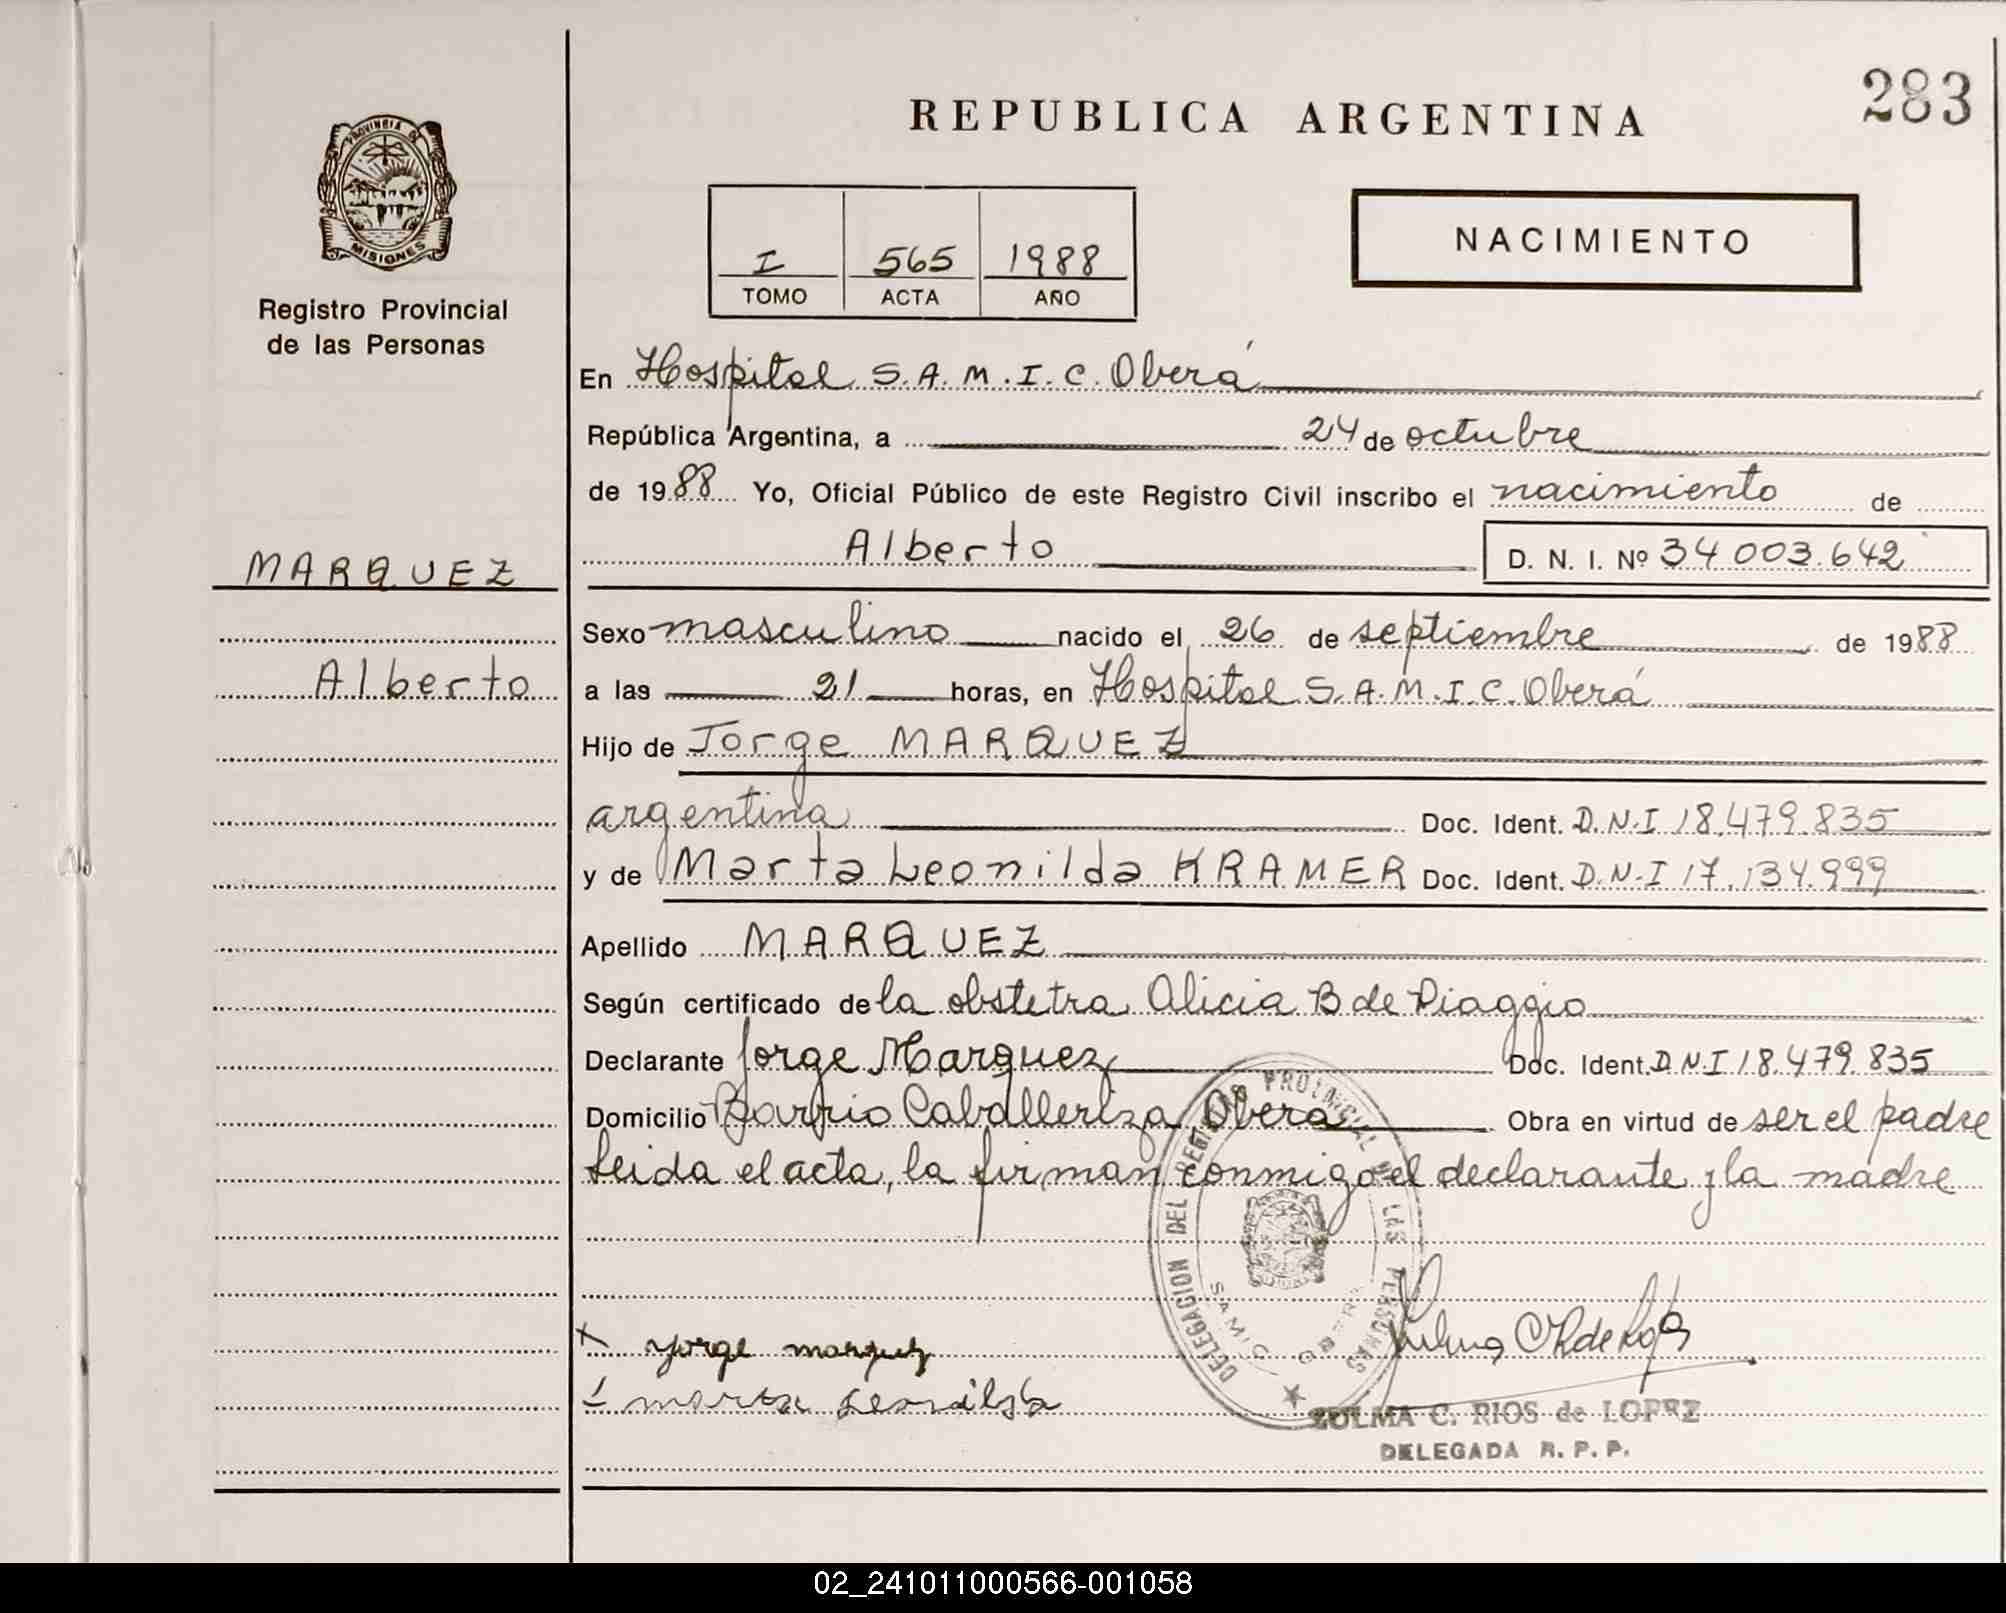 283
REPUBLICA ARGENTINA
PROVINCIA DE
MISIONES
Registro Provincial
de las Personas
I 565 1988
TOMO ACTA AÑO
NACIMIENTO
En Hospital S.A.M.I.C. Oberá
República Argentina, a 24 de octubre
de 1988 Yo, Oficial Público de este Registro Civil inscribo el nacimiento de
Alberto D. N. I. Nº 34 003.642
MARQUEZ
Alberto
Sexo masculino nacido el 26 de septiembre de 1988
a las 21 horas, en Hospital S.A.M.I.C. Oberá
Hijo de Jorge MARQUEZ
argentina Doc. Ident. D.N.I 18.479.835
y de Marta Leonilda KRAMER Doc. Ident. D.N.I 17.134.999
Apellido MARQUEZ
Según certificado de la obstetra Alicia B de Piaggio
Declarante Jorge Marquez Doc. Ident. D.N.I 18.479.835
Domicilio Barrio Caballeriza Oberá Obra en virtud de ser el padre
Leida el acta, la firman conmigo el declarante y la madre
DELEGACION DEL REGISTRO PROVINCIAL DE LAS PERSONAS
SAMIC OBERA
x Jorge marquez
marta
ZULMA C. RIOS de LOPEZ
DELEGADA R. P. P.
02_241011000566-001058